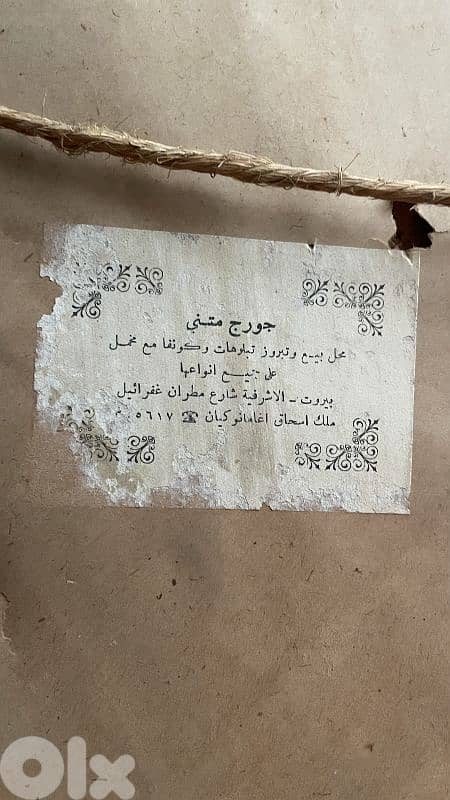 جورج متني
محل بيع وتبروز تبلوهات وكونفا مع مخمل
على جميع انواعها
بيروت - الاشرفية شارع مطران غفرائيل
ملك اسحاق اغامانوكيان ☎ ٥٦١٧
OLX